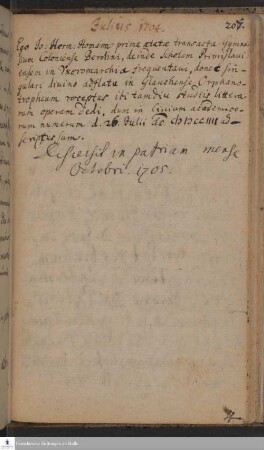 Julius 1704.
207.
Ego Jo: Herm. Homann primâ ætate transacta gymna-
sium Coloniense Berolini, deinde scholam Primislavi-
ensem in Vkeromarchia frequentavi, donec sin-
gulari divino adflatu in Glauchense Orphano-
tropheum receptus ibi tamdiu studiis littera-
rum operam dedi, dum in Civium academico-
rum numerum d. 26. Julii
scriptus sum.
Discessit in patriam mense
Octobri. 1705.